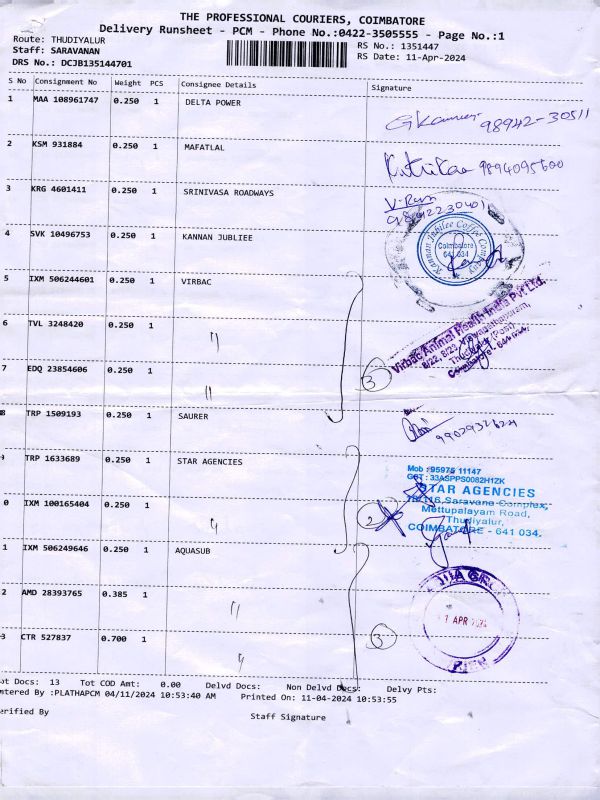 THE PROFESSIONAL COURIERS, COIMBATORE
Delivery Runsheet - PCM - Phone No.:0422-3505555 - Page No.:1
Route: THUDIYALUR
Staff: SARAVANAN
DRS No.: DCJB135144701
RS No.: 1351447
RS Date: 11-Apr-2024
S No Consignment No Weight PCS Consignee Details Signature
1 MAA 108961747 0.250 1 DELTA POWER
98942-30511
2 KSM 931884 0.250 1 MAFATLAL
9894095600
3 KRG 4601411 0.250 1 SRINIVASA ROADWAYS
V-Ram
4 SVK 10496753 0.250 1 KANNAN JUBLIEE
Kannan Jubilee Coffee Company
Coimbatore
641 034
5 IXM 506244601 0.250 1 VIRBAC
Virbac Animal Health India Pvt Ltd.
6 TVL 3248420 0.250 1 "
Coimbatore
7 EDQ 23854606 0.250 1 "
3
8 TRP 1509193 0.250 1 SAURER
9 TRP 1633689 0.250 1 STAR AGENCIES
Mob : 95975 11147
GST : 33ASPPS0082H1ZK
STAR AGENCIES
Saravana Complex,
Mettupalayam Road,
Thudiyalur,
COIMBATORE - 641 034.
0 IXM 100165404 0.250 1 "
2
1 IXM 506249646 0.250 1 AQUASUB
2 AMD 28393765 0.385 1 "
APR 2024
3 CTR 527837 0.700 1 "
3
ot Docs: 13 Tot COD Amt: 0.00 Delvd Docs: Non Delvd Docs: Delvy Pts:
ntered By :PLATHAPCM 04/11/2024 10:53:40 AM Printed On: 11-04-2024 10:53:55
erified By
Staff Signature